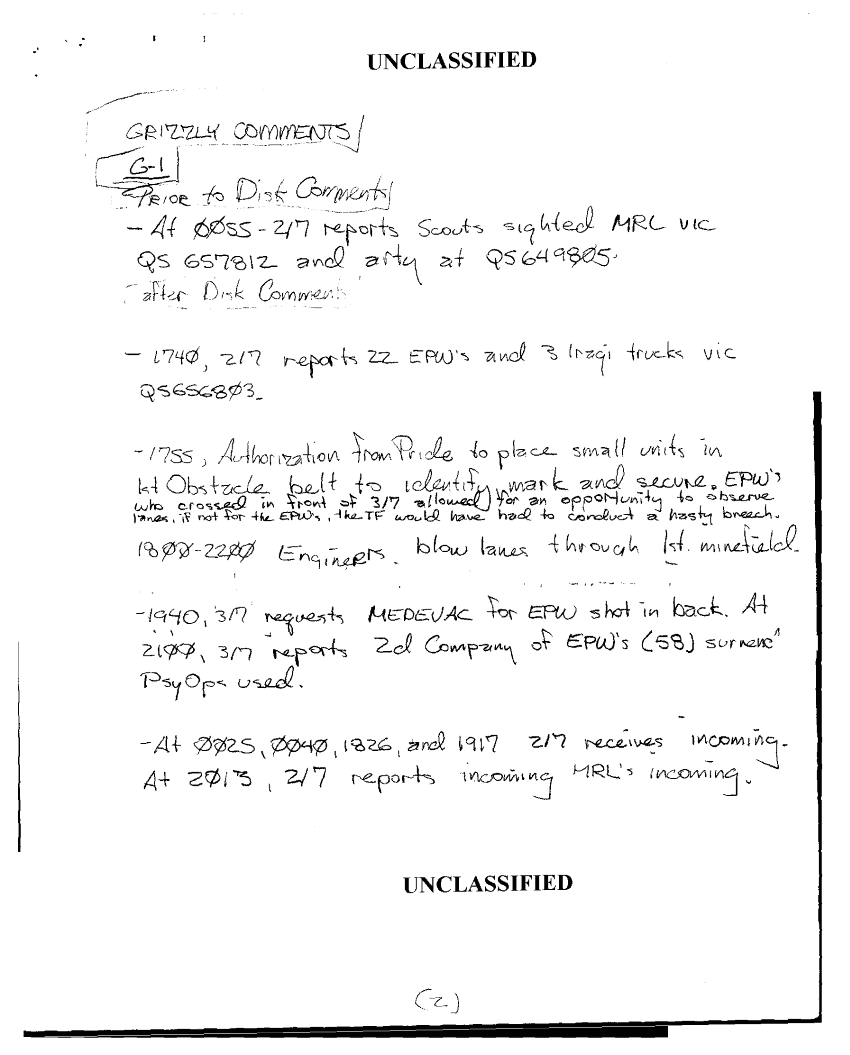 UNCLASSIFIED
GRIZZLY COMMENTS
G-1
PRIOR to Disk Comments
- At 0055 - 2/7 reports Scouts sighted MRL vic
QS 657812 and arty at QS649805.
after Disk Comment
- 1740, 2/7 reports 22 EPW's and 3 Iraqi trucks vic
QS656803.
- 1755, Authorization from Pride to place small units in
1st Obstacle belt to identify, mark and secure. EPW's
who crossed in front of 3/7 allowed for an opportunity to observe
lanes, if not for the EPW's, the TF would have had to conduct a hasty breech.
1800-2200 Engineers. blow lanes through 1st. minefield.
- 1940, 3/7 requests MEDEVAC for EPW shot in back. At
2100, 3/7 reports 2d Company of EPW's (58)
PsyOps used.
- At 0025, 0040, 1826, and 1917 2/7 receives incoming.
At 2013, 2/7 reports incoming MRL's incoming.
UNCLASSIFIED
(2)